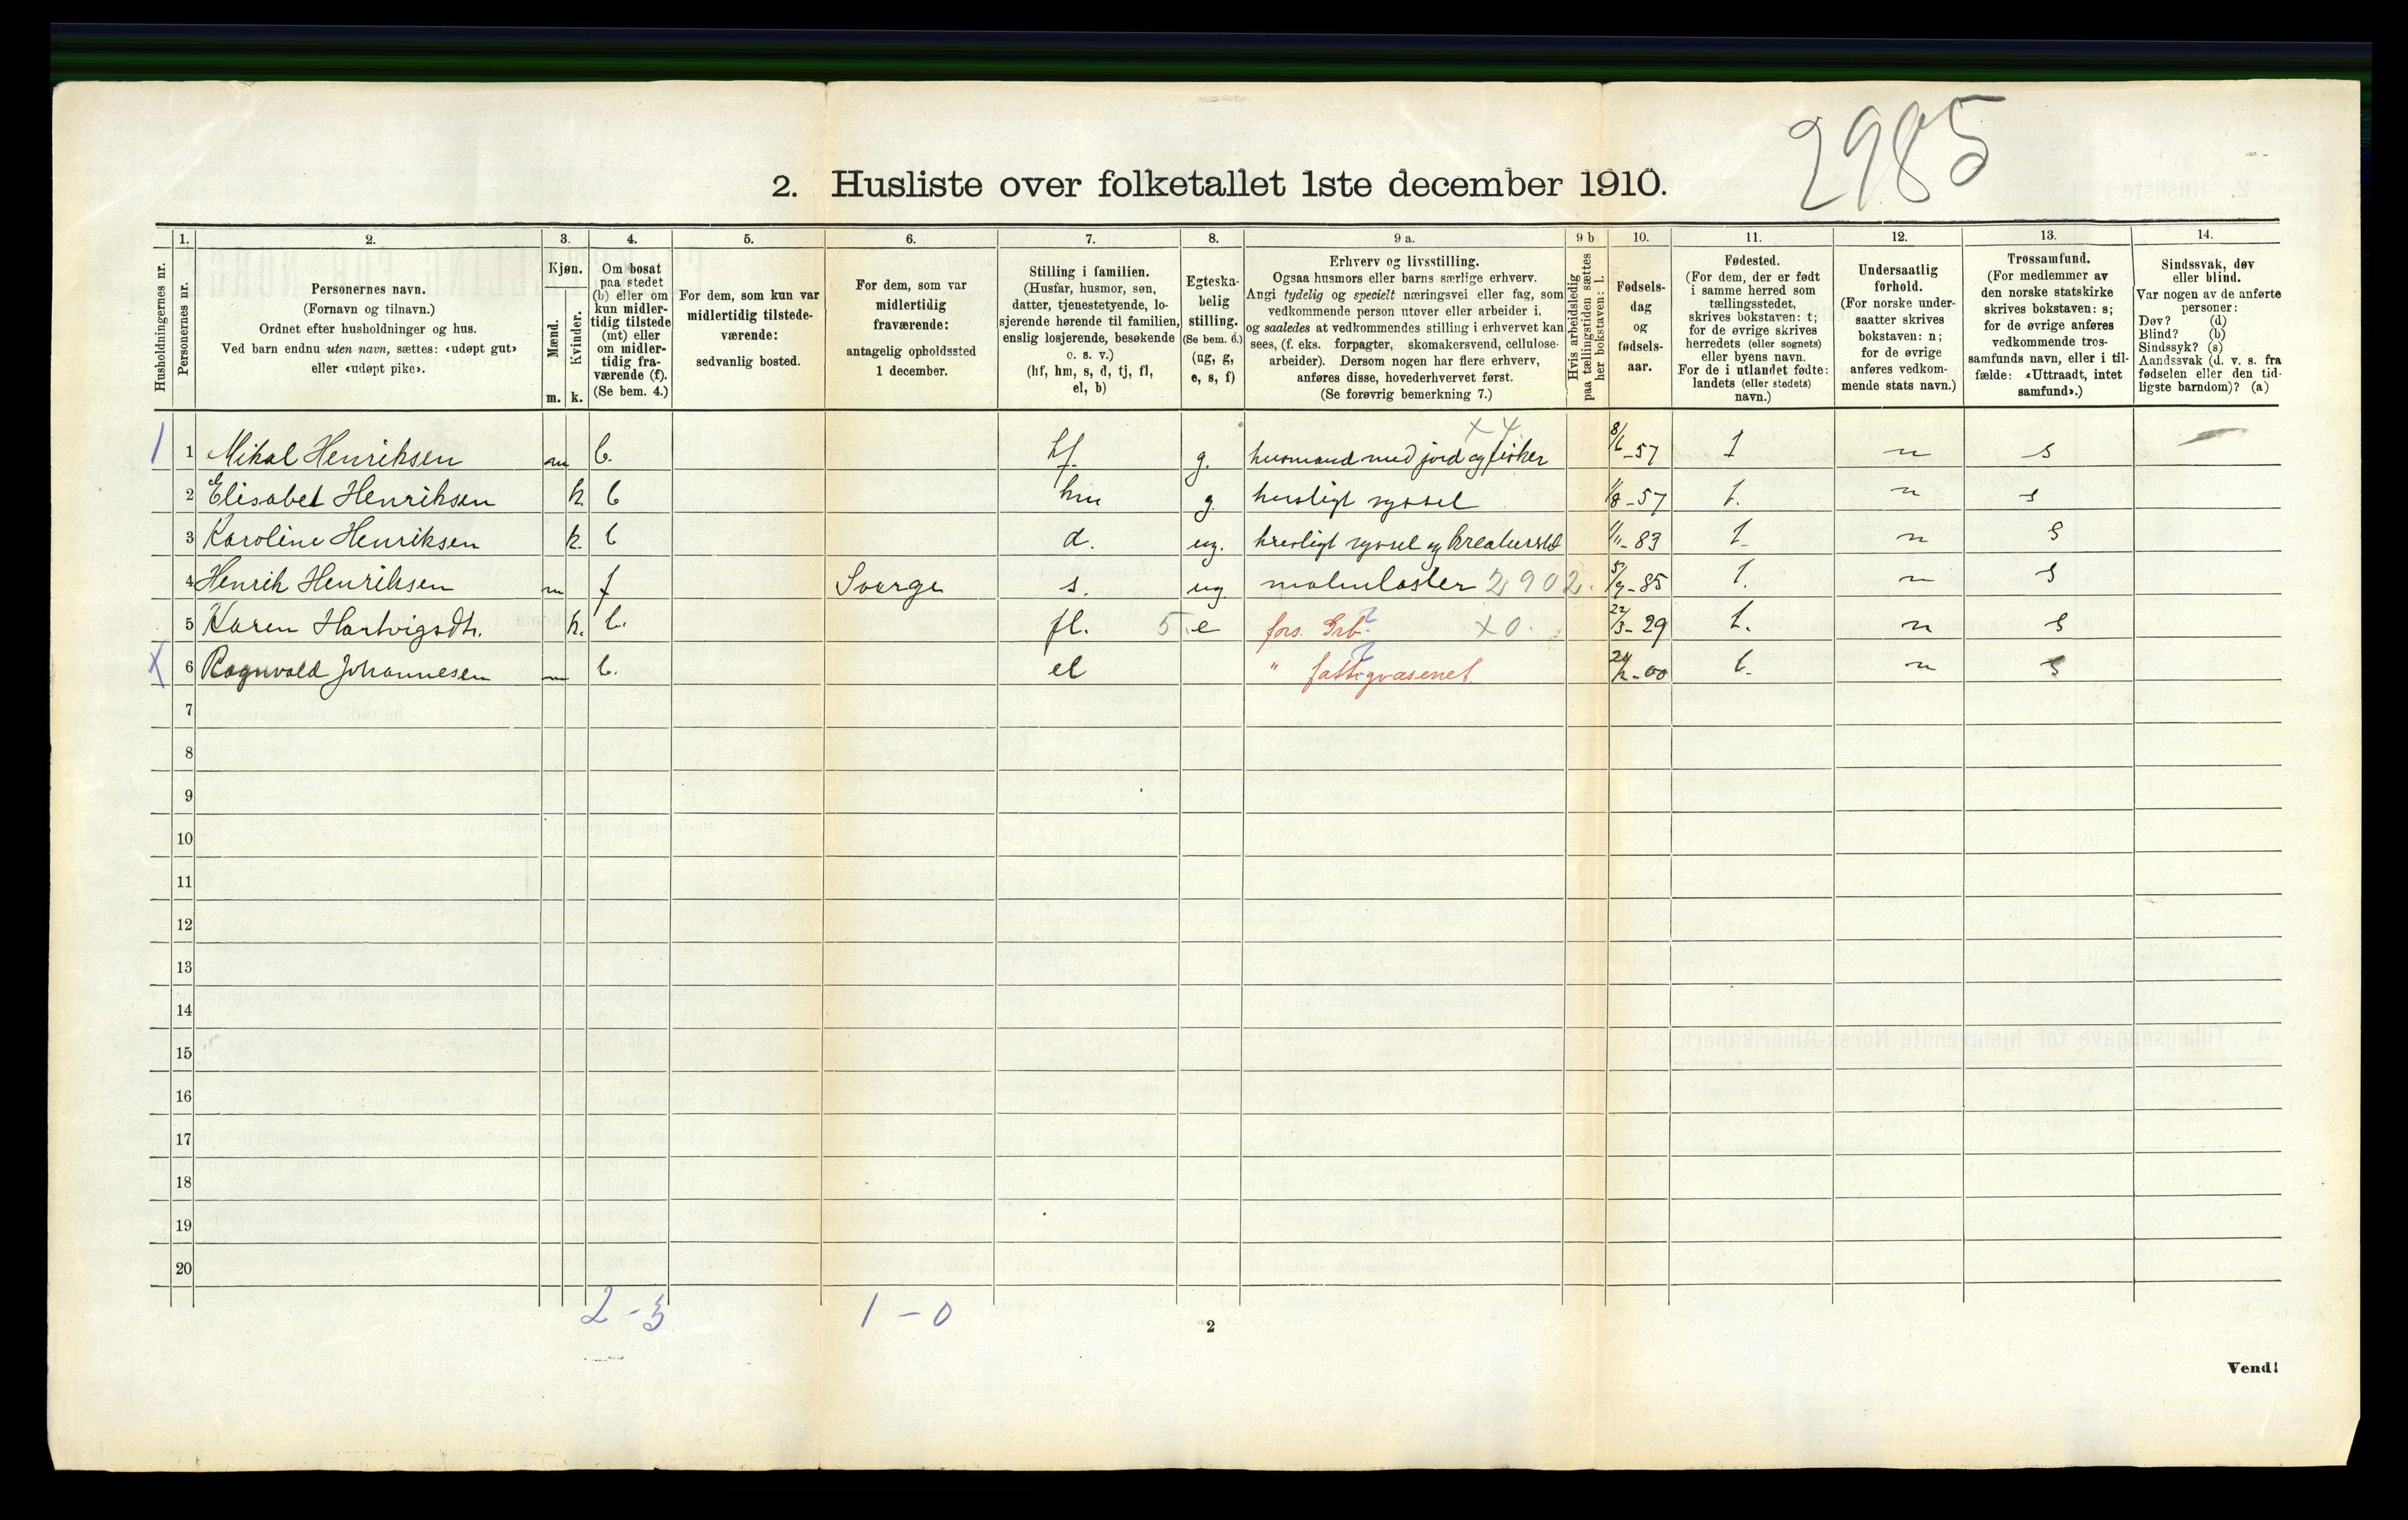 2985
2. Husliste over folketallet 1ste december 1910.
Husholdningernes nr.
1. Personernes nr.
2. Personernes navn.
(Fornavn og tilnavn.)
Ordnet efter husholdninger og hus.
Ved barn endnu uten navn, sættes: «udøpt gut»
eller «udøpt pike».
3. Kjøn.
Mænd. Kvinder.
m. k.
4. Om bosat
paa stedet
(b) eller om
kun midler-
tidig tilstede
(mt) eller
om midler-
tidig fra-
værende (f).
(Se bem. 4.)
5. For dem, som kun var
midlertidig tilstede-
værende:
sedvanlig bosted.
6. For dem, som var
midlertidig
fraværende:
antagelig opholdssted
1 december.
7. Stilling i familien.
(Husfar, husmor, søn,
datter, tjenestetyende, lo-
sjerende hørende til familien,
enslig losjerende, besøkende
o. s. v.)
(hf, hm, s, d, tj, fl,
el, b)
8. Egteska-
belig
stilling.
(Se bem. 6.)
(ug, g,
e, s, f)
9 a. Erhverv og livsstilling.
Ogsaa husmors eller barns særlige erhverv.
Angi tydelig og specielt næringsvei eller fag, som
vedkommende person utøver eller arbeider i,
og saaledes at vedkommendes stilling i erhvervet kan
sees, (f. eks. forpagter, skomakersvend, cellulose-
arbeider). Dersom nogen har flere erhverv,
anføres disse, hovederhvervet først.
(Se forøvrig bemerkning 7.)
9 b Hvis arbeidsledig
paa tællingstiden sættes
her bokstaven: l.
10. Fødsels-
dag
og
fødsels-
aar.
11. Fødested.
(For dem, der er født
i samme herred som
tællingsstedet,
skrives bokstaven: t;
for de øvrige skrives
herredets (eller sognets)
eller byens navn.
For de i utlandet fødte:
landets (eller stedets)
navn.)
12. Undersaatlig
forhold.
(For norske under-
saatter skrives
bokstaven: n;
for de øvrige
anføres vedkom-
mende stats navn.)
13. Trossamfund.
(For medlemmer av
den norske statskirke
skrives bokstaven: s;
for de øvrige anføres
vedkommende tros-
samfunds navn, eller i til-
fælde: «Uttraadt, intet
samfund».)
14. Sindssvak, døv
eller blind.
Var nogen av de anførte
personer:
Døv? (d)
Blind? (b)
Sindssyk? (s)
Aandssvak (d. v. s. fra
fødselen eller den tid-
ligste barndom)? (a)
1 1 Mikal Henriksen m b. hf. g. husmand med jord og fisker x 4 8/6-57 t n s
2 Elisabet Henriksen k. b hm g. husligt syssel 1/8-57 t. n s
3 Karoline Henriksen k. b d. ug. husligt syssel og kreaturstel 1/11-83 t. n s
4 Henrik Henriksen m f Sverge s. ug malmlaster 2902. 5/9-85 t. n s
5 Karen Hartvigsdtr. k. b. fl. 5 e fors. Grb. x 0. 22/3-29 t. n s
x 6 Ragnvald Johannesen m b. el " fattigvæsenet 24/2-00 t. n s
7
8
9
10
11
12
13
14
15
16
17
18
19
20
2-3 1-0
2
Vend!